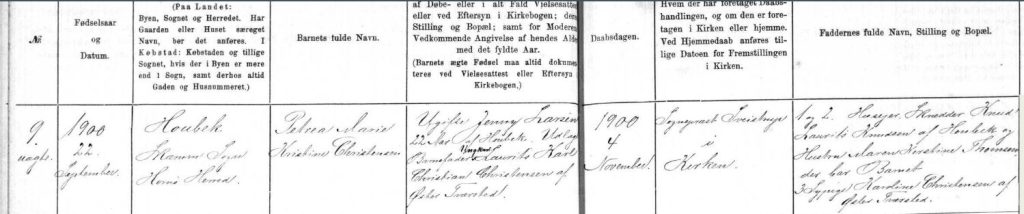 №
Fødselsaar
og
Datum.
(Paa Landet:
Byen, Sognet og Herredet. Har
Gaarden eller Huset særeget
Navn, bør det anføres. I
Købstad: Købstaden og tillige
Sognet, hvis der i Byen er mere
end 1 Sogn, samt derhos altid
Gaden og Husnummeret.)
Barnets fulde Navn.
af Døbe- eller i alt Fald Vielsesattest
eller ved Eftersyn i Kirkebogen; des
Stilling og Bopæl; samt for Moderen
Vedkommende Angivelse af hendes Alde
med det fyldte Aar.
(Barnets ægte Fødsel maa altid dokume
teres ved Vielsesattest eller Eftersyn i
Kirkebogen.)
Daabsdagen.
Hvem der har foretaget Daabs-
handlingen, og om den er fore-
tagen i Kirken eller hjemme.
Ved Hjemmedaab anføres til-
lige Datoen for Fremstillingen
i Kirken.
Faddernes fulde Navn, Stilling og Bopæl.
9.
uægt.
1900
22.
September.
Houbek
Skanum Sogn
Horns Herred.
Petrea Marie
Kristine Christensen
Ugifte Jenny Larsen
22 Aar af Houbek. Udlagt
Barnefader Ungkarl Laurits Karl
Christian Christensen af
Øster Trarsted.
1900
4
November.
Sognepræst
i
Kirken
1 og 2. Husejer Skrædder Knud
Laurits Knudsen af Houbek og
Hustru Maren Kristine Thomsen
der bar Barnet
3 Sypige Karoline Christensen af
Øster Trarsted.